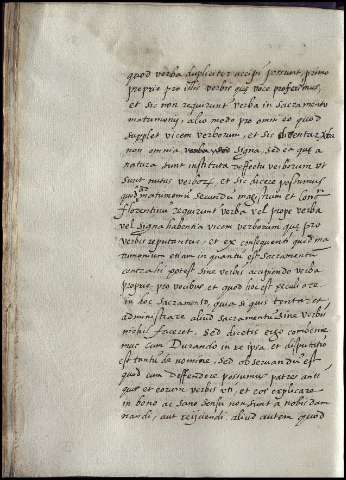 quod verba dupliciter accipi possunt, primo
proprie pro illis verbis quę voce proferimus,
et sic non requirunt verba in sacramento
matrimonij, alio modo pro omni eo quod
supplet vicem verborum, et sic
non omnia signa, sed ea quę a
natura sunt instituta
sunt nutus et sic dicere possumus
quod matrimonium secundum magistrum et
florentinum requirunt verba vel prope verba
vel signa habentia vicem verborum quę pro
verbis reputantur, et ex consequenti quod ma
trimonium etiam in quantum est sacramentum
potest sine verbis accipiendo verba
proprie pro vocibus et quod hoc est peculiare
in hoc sacramento, quia si quis tentaret
administrare aliud sacramentum sine verbis
nichil faceret. sed dicetis ergo
mus cum Durando in re ipsa et disputatio
est tantum de nomine, sed observandum est
quod cum deffendere possumus patres anti
quos et eorum verbis uti, et eos explicare
in bono ac sano sensu non sunt a nobis dam
nandi, aut reijciendi. aliud autem quod